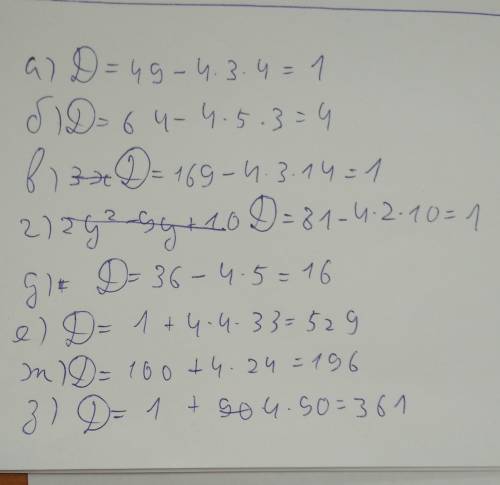 а) D = 49 - 4·3·4 = 1
б) D = 64 - 4·5·3 = 4
в) D = 169 - 4·3·14 = 1
г) 2y² - 9y + 10 D = 81 - 4·2·10 = 1
д) D = 36 - 4·5 = 16
е) D = 1 + 4·4·33 = 529
ж) D = 100 + 4·24 = 196
з) D = 1 + 90 4·90 = 361